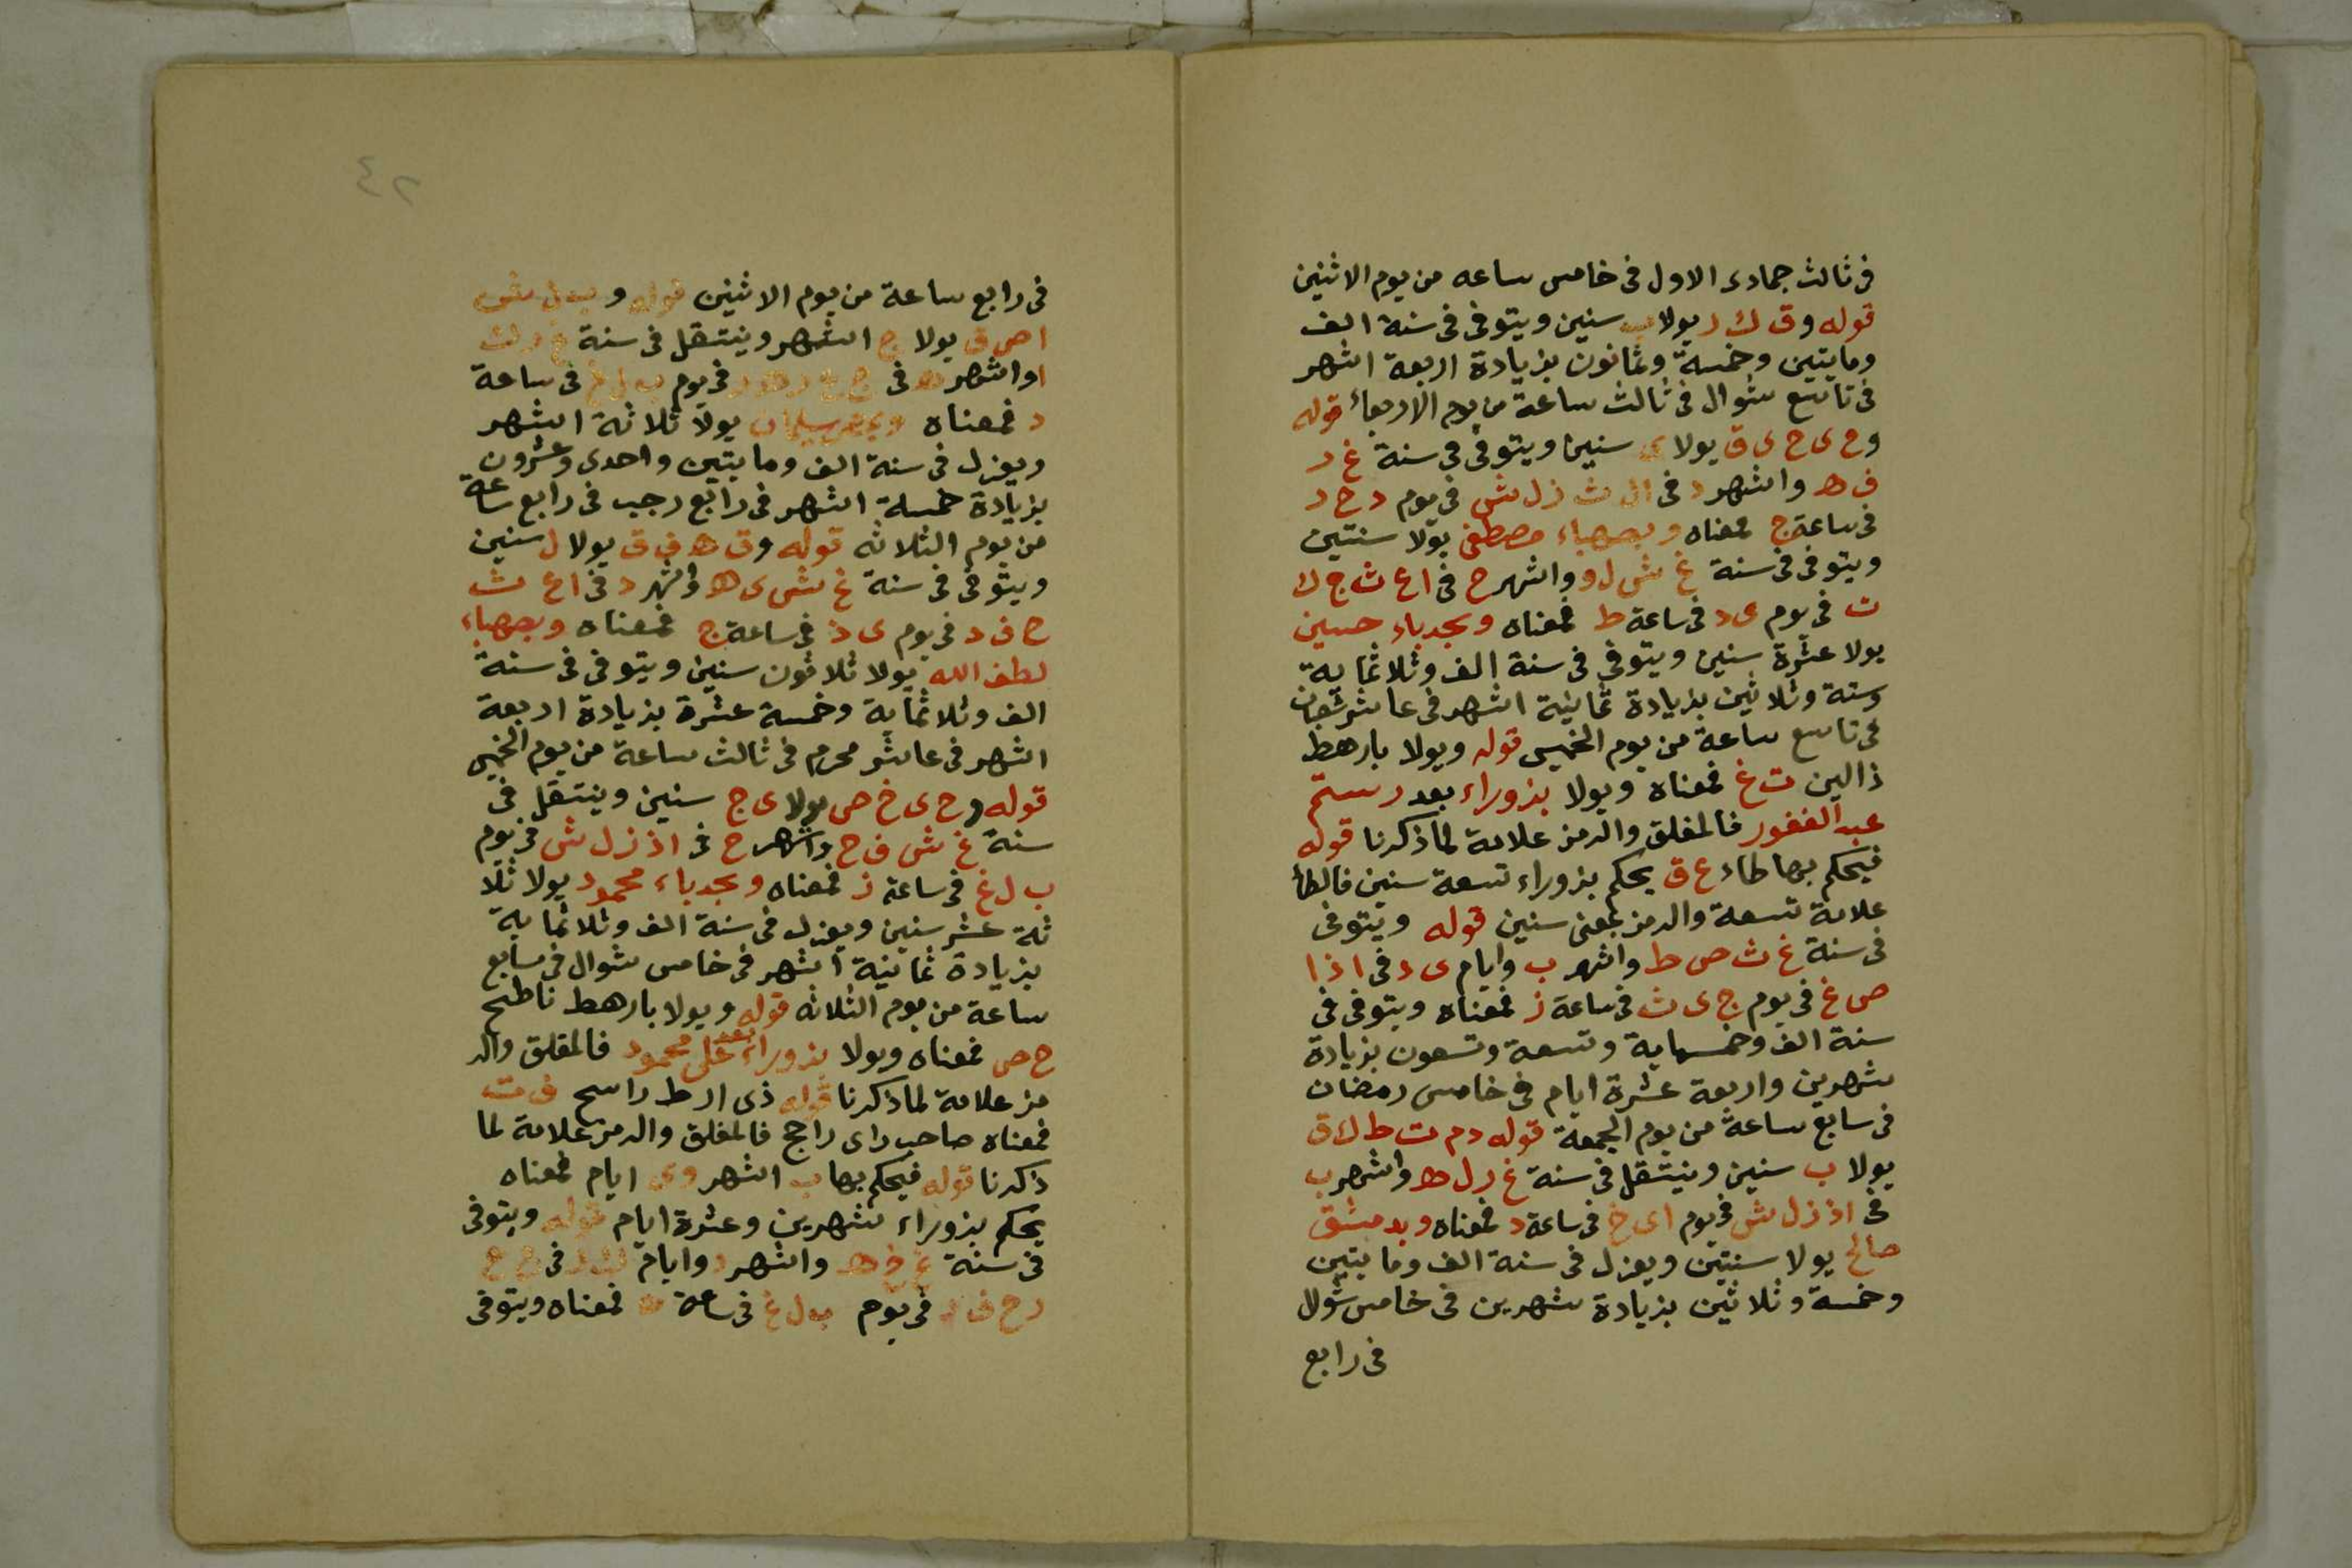 في ثالث جمادى الاول في خامس ساعه من يوم الاثنين
قوله وق ك ر يولا ب سنين ويتوفى في سنة الف
ومايتين وخمسة وثمانون بزيادة اربعة اشهر
في تاسع شوال في ثالث ساعة من يوم الاربعاء قوله
وح ى ح ى ق يولا ى سنين ويتوفى في سنة غ ر
ف ه واشهر د في ال ث ز ل ش في يوم د ح د
في ساعة ج فمعناه وبصهباء مصطفى يولا سنتين
ويتوفى في سنة غ ش ل و واشهر ح في ا ع ث ج ك
ت في يوم ى د في ساعة ط فمعناه وبجدباء حسين
يولا عشرة سنين ويتوفى في سنة الف وثلاثماية
وستة وثلاثين بزيادة ثمانية اشهر في عاشر شعبان
في تاسع ساعة من يوم الخميس قوله ويولا بارهط
ذالين ت غ فمعناه ويولا بزوراء بعد رستم
عبد الغفور فالمغلق والرمز علامة لما ذكرنا قوله
فيحكم بها طاء ع ق يحكم بزوراء تسعة سنين فالطا
علامة تسعة والرمز بمعنى سنين قوله ويتوفى
في سنة غ ث ص ط واشهر ب وايام ى د في ا ذ ا
ص غ في يوم ج ى ث في ساعة ز فمعناه ويتوفى في
سنة الف وخمسماية وتسعة وتسعون بزيادة
شهرين واربعة عشرة ايام في خامس رمضان
في سابع ساعة من يوم الجمعة قوله دم ت ط ك ق
يولا ب سنين وينتقل في سنة غ ر ل ه واشهر ب
في ا ذ ز ل ش في يوم ا ى خ في ساعة د فمعناه وبدمشق
صالح يولا سنتين ويعزل في سنة الف ومايتين
وخمسة وثلاثين بزيادة شهرين في خامس شوال
في رابع
٤٢
في رابع ساعة من يوم الاثنين قوله و
ا ص ق يولا ج اشهر وينتقل في سنة غ ر ك
ا واشهر ه في في يوم ب ل غ في ساعة
د فمعناه سليمان يولا ثلاثة اشهر
ويعزل في سنة الف ومايتين واحدى وعشرون
بزيادة خمسة اشهر في رابع رجب في رابع ساعة
من يوم الثلاثه قوله وق ه ف ق يولا ل سنين
ويتوفى في سنة غ ش ى ه واشهر د في ا ع ث
ح ف د في يوم ى د في ساعة ج فمعناه وبصهباء
لطف الله يولا ثلاثون سنين ويتوفى في سنة
الف وثلاثماية وخمسة عشرة بزيادة اربعة
اشهر في عاشر محرم في ثالث ساعة من يوم الخميس
قوله وح ى خ ص يولا ى ج سنين وينتقل في
سنة غ ش ف ح واشهر ح في ا ذ ز ل ش في يوم
ب ل غ في ساعة ز فمعناه وبجدباء محمود يولا ثلا
ثة عشر سنين ويعزل في سنة الف وثلاثماية
بزيادة ثمانية اشهر في خامس شوال في سابع
ساعة من يوم الثلاثه قوله ويولا بارهط ناطح
ح ص فمعناه ويولا بزوراء بعد على محمود فالمقلق والر
مز علامة لما ذكرنا قوله ذى ارط راسح ف ت
فمعناه صاحب راى راجح فالمغلق والرمز علامة لما
ذكرنا قوله فيحكم بها ب اشهر وى ايام فمعناه
يحكم بزوراء شهرين وعشرة ايام قوله ويتوفى
في سنة غ خ ه واشهر د وايام في
ر ح ف د في يوم ب ل غ في ساعة فمعناه ويتوفى